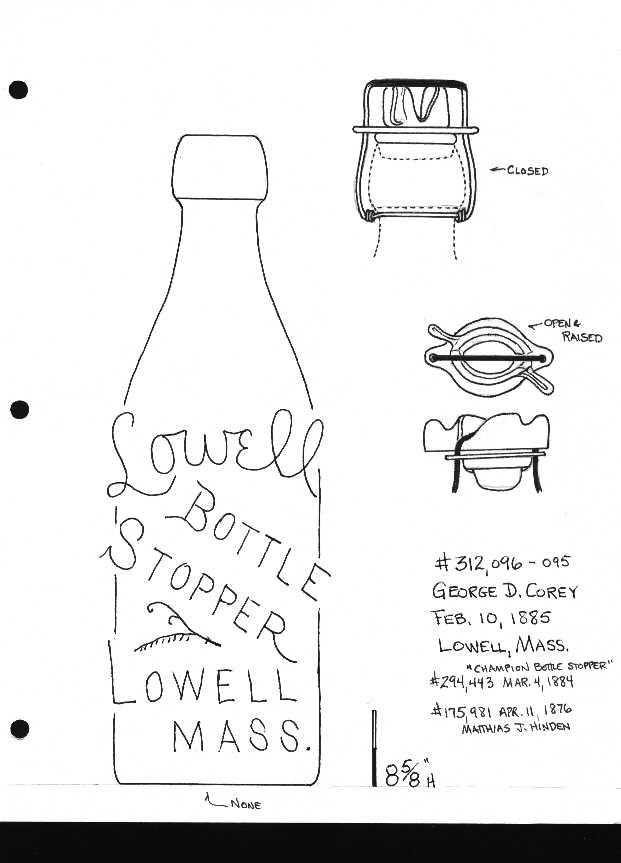 CLOSED
OPEN &
RAISED
Lowell
BOTTLE
STOPPER
LOWELL
MASS.
#312,096 - 095
GEORGE D. COREY
FEB. 10, 1885
LOWELL, MASS.
"CHAMPION BOTTLE STOPPER"
#294,443 MAR. 4, 1884
#175,981 APR. 11, 1876
MATTHIAS J. HINDEN
8 5/8" H
NONE